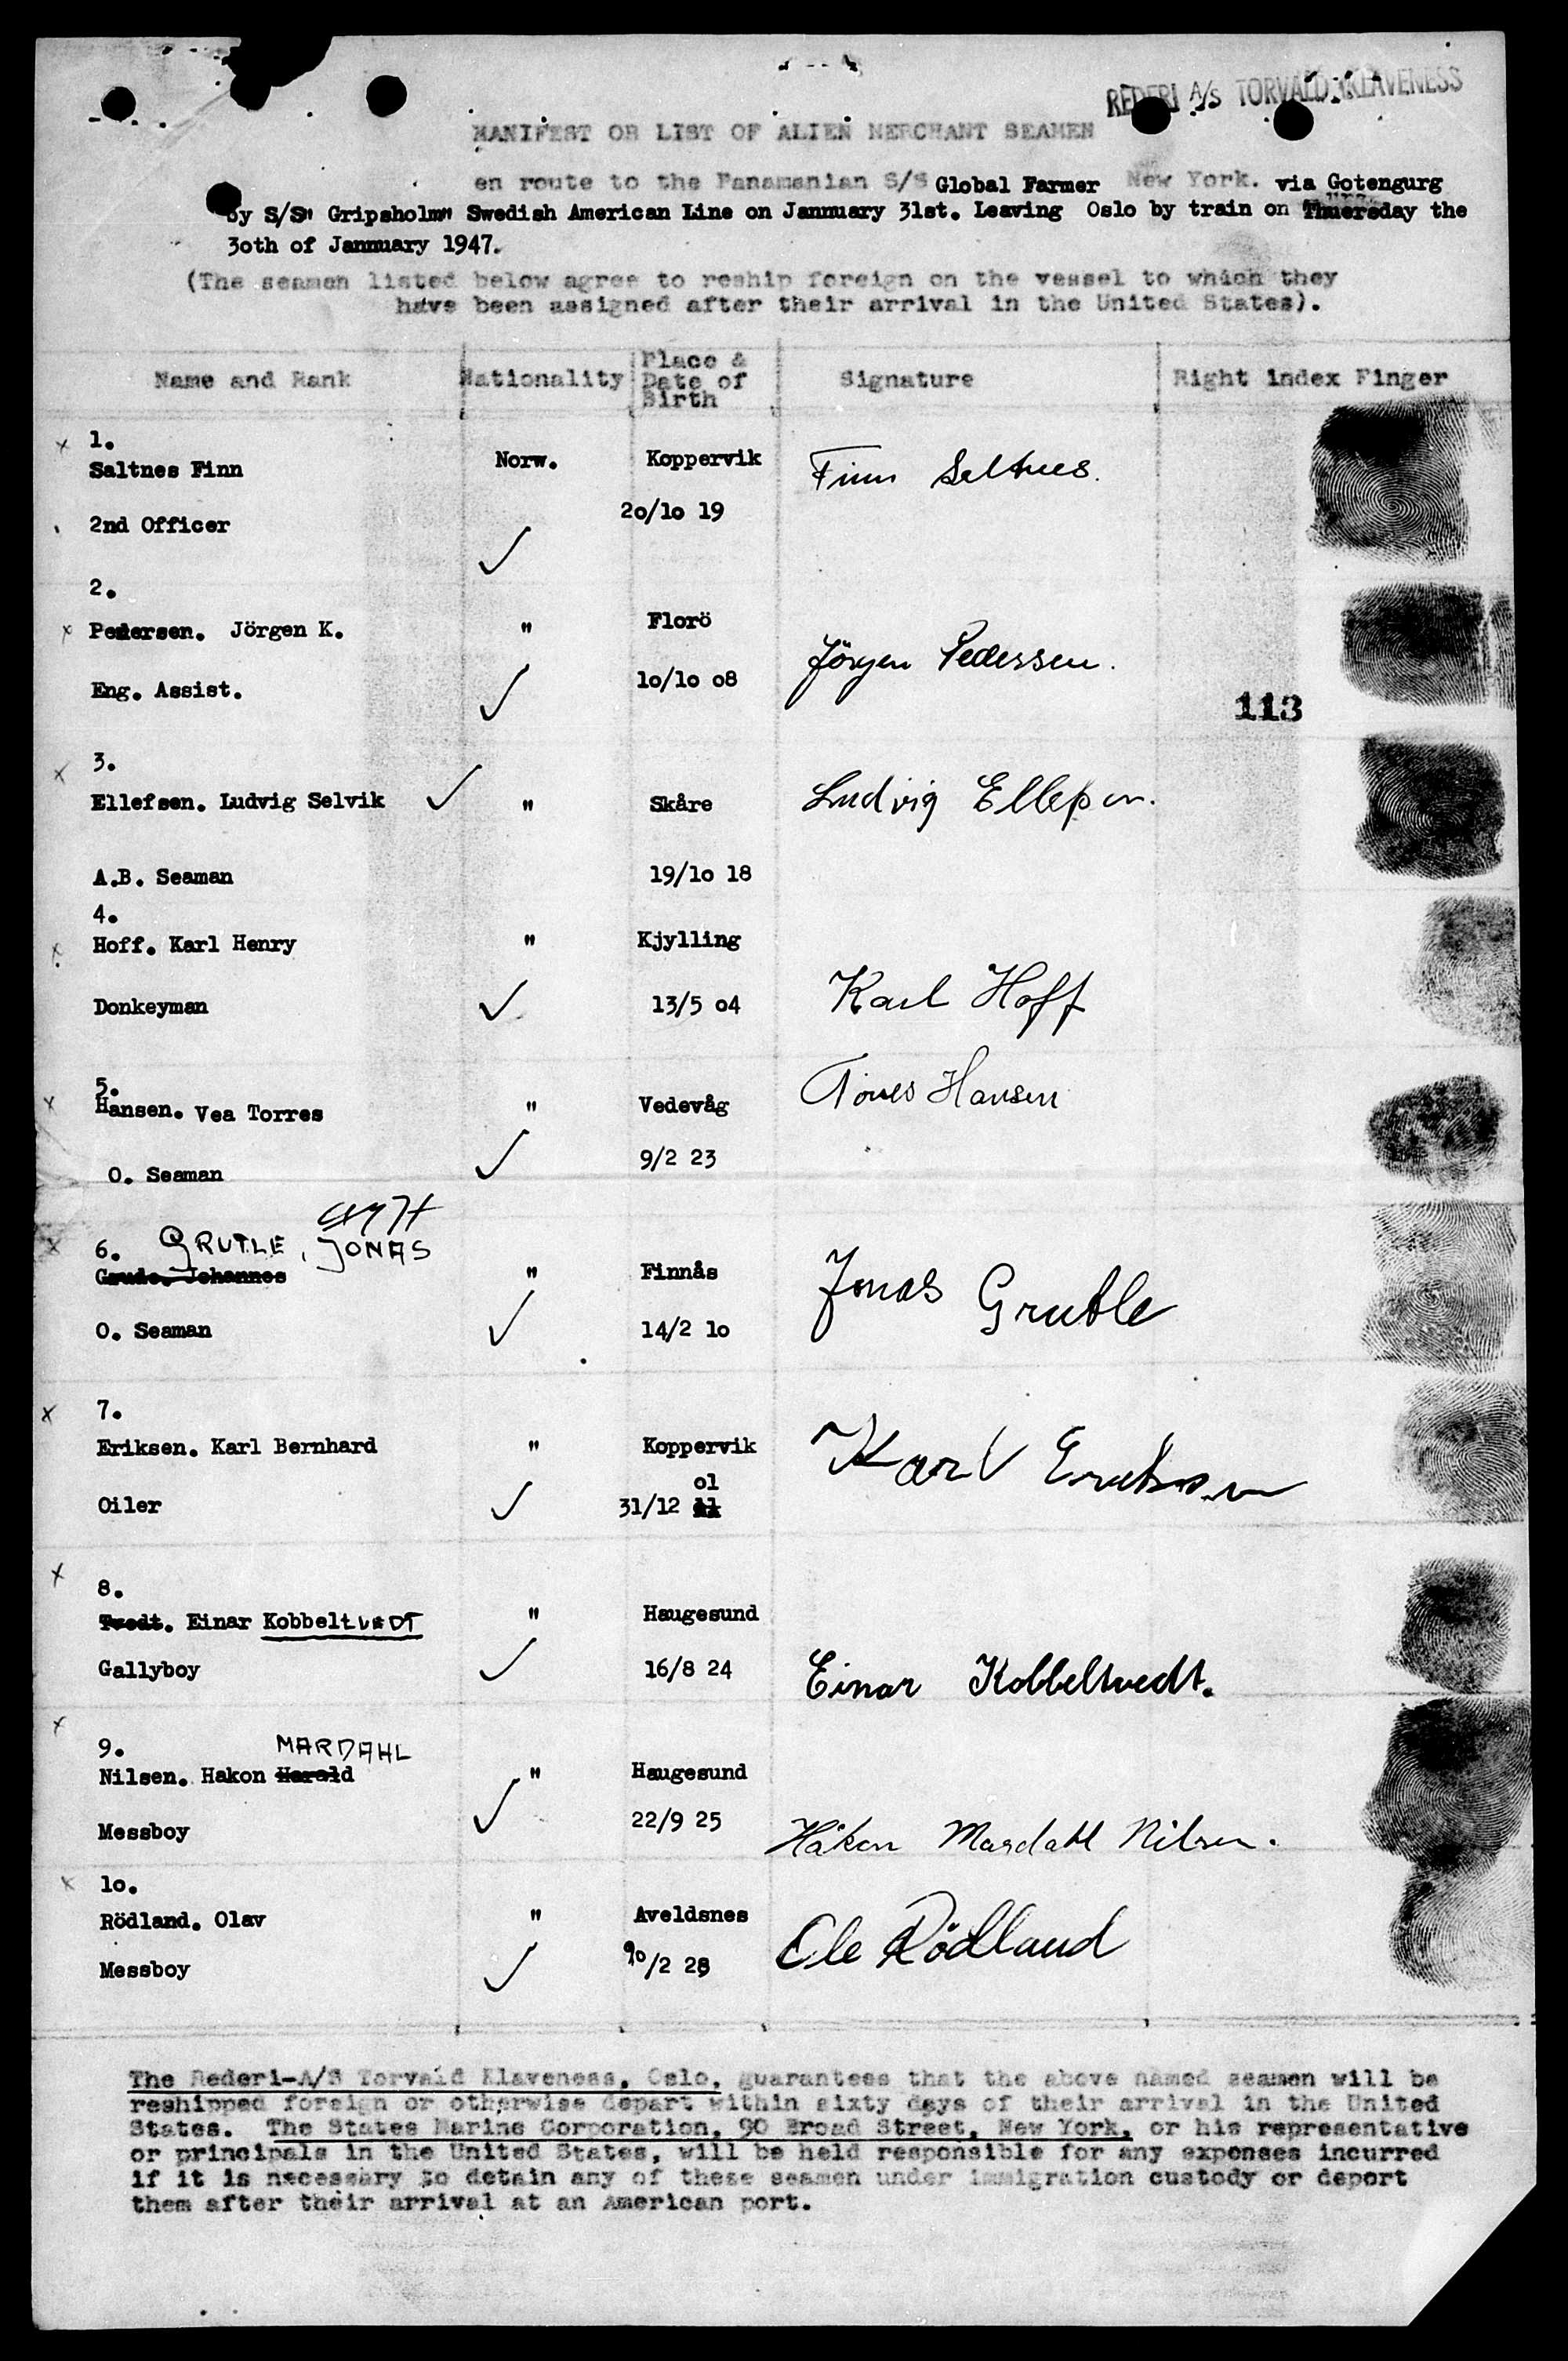 REDERI A/S TORVALD KLAVENESS
MANIFEST OR LIST OF ALIEN MERCHANT SEAMEN
en route to the Panamanian S/S Global Farmer New York. via Gotengurg
by S/S" Gripsholm" Swedish American Line on Jannuary 31st. Leaving Oslo by train on Thuersday the
3oth of Jannuary 1947.
(The seamen listed below agree to reship foreign on the vessel to which they
have been assigned after their arrival in the United States).
Name and Rank Nationality Place & Date of Birth Signature Right index Finger
1.
Saltnes Finn Norw. Koppervik Finn Saltnes.
2nd Officer 20/10 19
2.
Pedersen. Jörgen K. " Florö Jörgen Pedersen.
Eng. Assist. 10/10 08
113
3.
Ellefsen. Ludvig Selvik " Skåre Ludvig Ellefsen.
A.B. Seaman 19/10 18
4.
Hoff. Karl Henry " Kjylling
Donkeyman 13/5 04 Karl Hoff
5.
Hansen. Vea Torres " Vedevåg Torres Hansen
O. Seaman 9/2 23
6. GRUTLE, JONAS
Gaude. Johannes " Finnås Jonas Grutle
O. Seaman 14/2 10
7.
Eriksen. Karl Bernhard " Koppervik Karl Eriksen
ol
Oiler 31/12
8.
Tvedt. Einar Kobbeltvedt " Haugesund
Gallyboy 16/8 24 Einar Kobbeltvedt.
9. MARDAHL
Nilsen. Hakon Harald " Haugesund
Messboy 22/9 25 Håkon Mardahl Nilsen.
10.
Rödland. Olav " Aveldsnes Ole Rödland
Messboy /2 28
The Rederi-A/S Torvald Klaveness, Oslo, guarantees that the above named seamen will be
reshipped foreign or otherwise depart within sixty days of their arrival in the United
States. The States Marine Corporation, 90 Broad Street, New York, or his representative
or principals in the United States, will be held responsible for any expenses incurred
if it is necessary to detain any of these seamen under immigration custody or deport
them after their arrival at an American port.